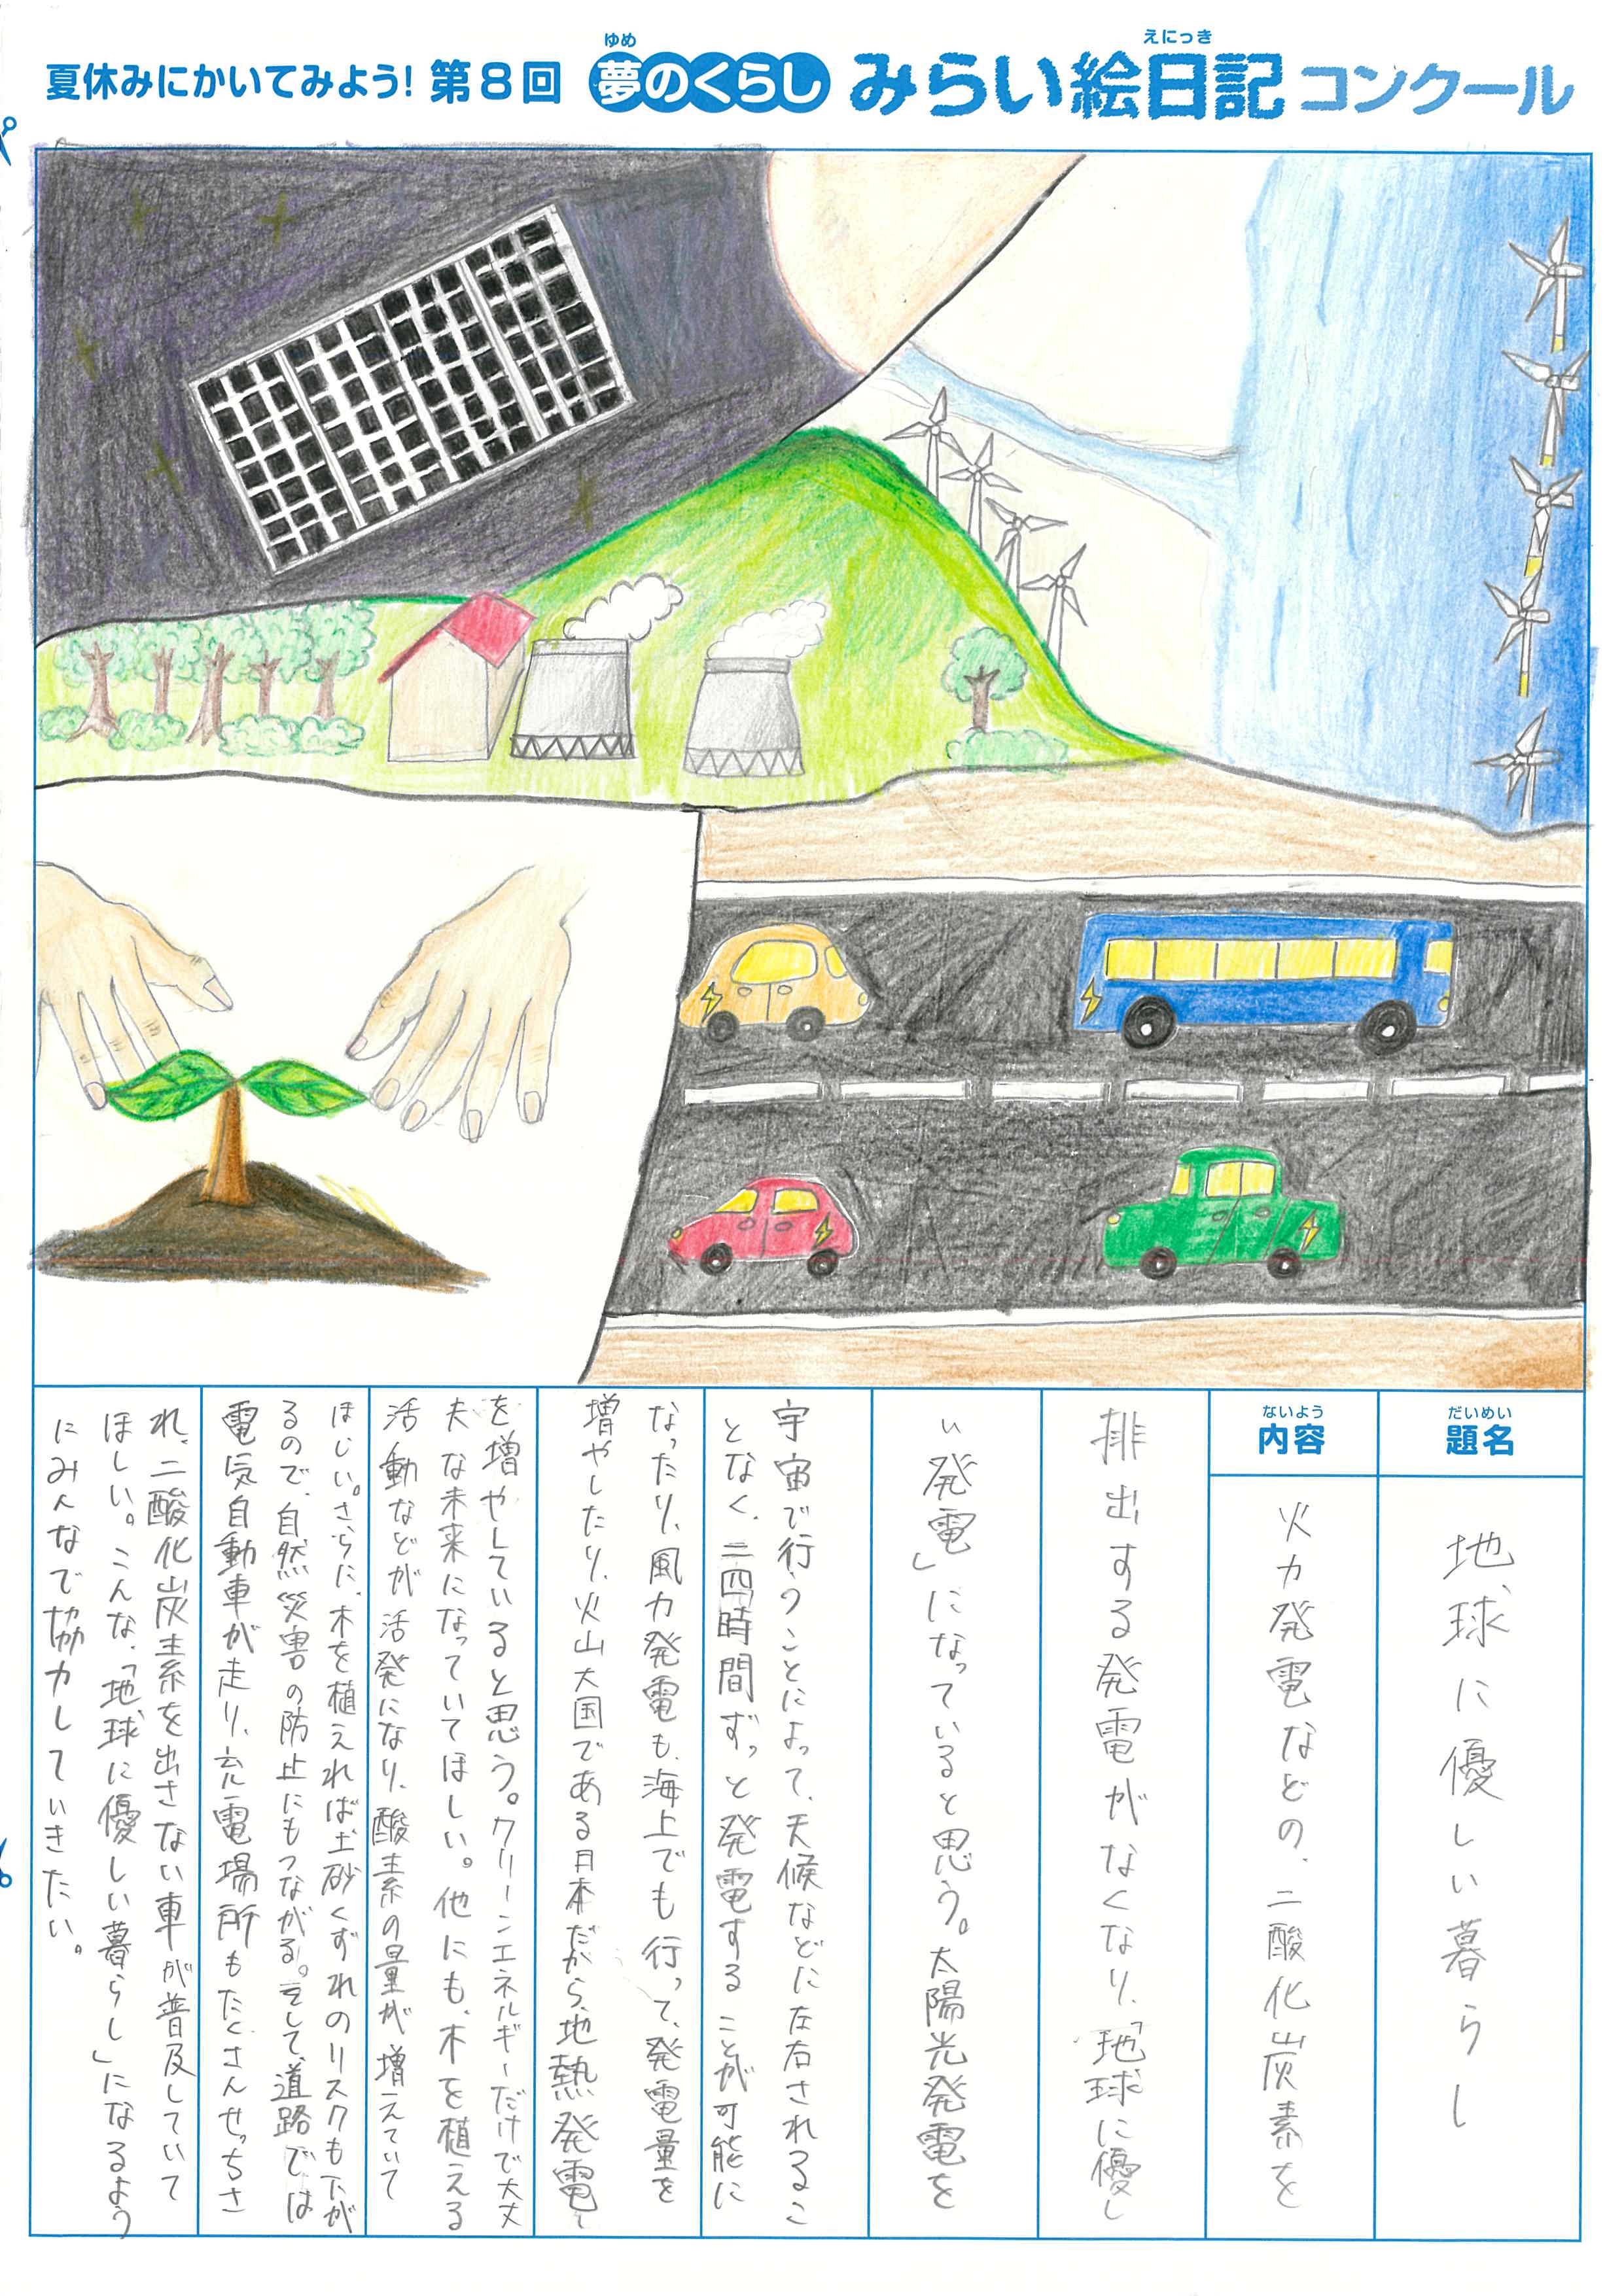 夏休みにかいてみよう! 第8回 夢のくらし みらい絵日記 コンクール
ゆめ
えにっき
だいめい
題名
地球に優しい暮らし
ないよう
内容
火力発電などの、二酸化炭素を
排出する発電がなくなり、「地球に優し
い発電」になっていると思う。太陽光発電を
宇宙で行うことによって、天候などに左右されるこ
となく、二四時間ずっと発電することが可能に
なったり、風力発電も、海上でも行って、発電量を
増やしたり、火山大国である日本だから、地熱発電
を増やしていると思う。クリーンエネルギーだけで大丈
夫な未来になっていてほしい。他にも、木を植える
活動などが活発になり、酸素の量が増えていて
ほしい。さらに、木を植えれば土砂くずれのリスクも下が
るので、自然災害の防止にもつながる。そして、道路では
電気自動車が走り、充電場所もたくさんせっちさ
れ、二酸化炭素を出さない車が普及していて
ほしい。こんな、「地球に優しい暮らし」になるよう
にみんなで協力していきたい。